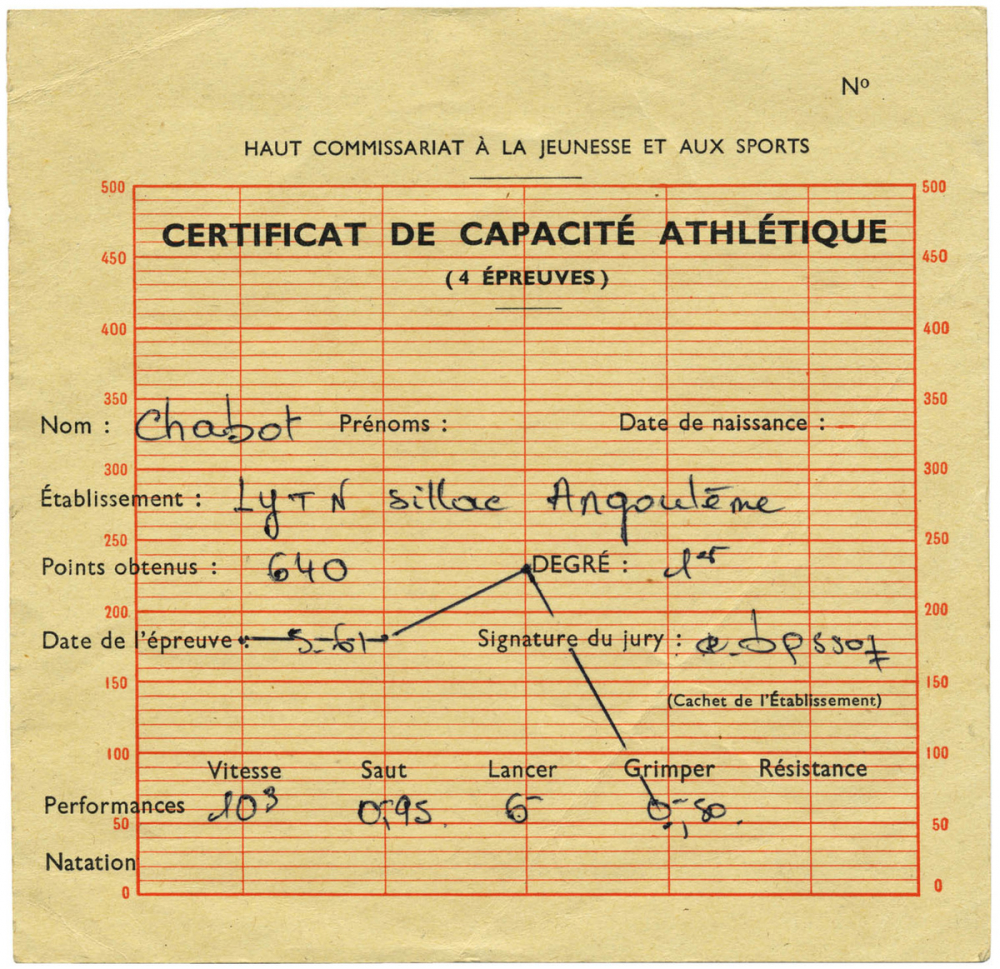 Nº
HAUT COMMISSARIAT À LA JEUNESSE ET AUX SPORTS
500 500
CERTIFICAT DE CAPACITÉ ATHLÉTIQUE
450 450
(4 ÉPREUVES)
400 400
350 350
Nom : Chabot Prénoms : Date de naissance :
300 300
Établissement : LyTN Sillac Angoulême
250 250
Points obtenus : 640 DEGRÉ : 1er
200 200
Date de l'épreuve : 5-61 Signature du jury :
150 150
(Cachet de l'Établissement)
100 100
Vitesse Saut Lancer Grimper Résistance
Performances 10³ 0,95 6 0,80
50 50
Natation
0 0